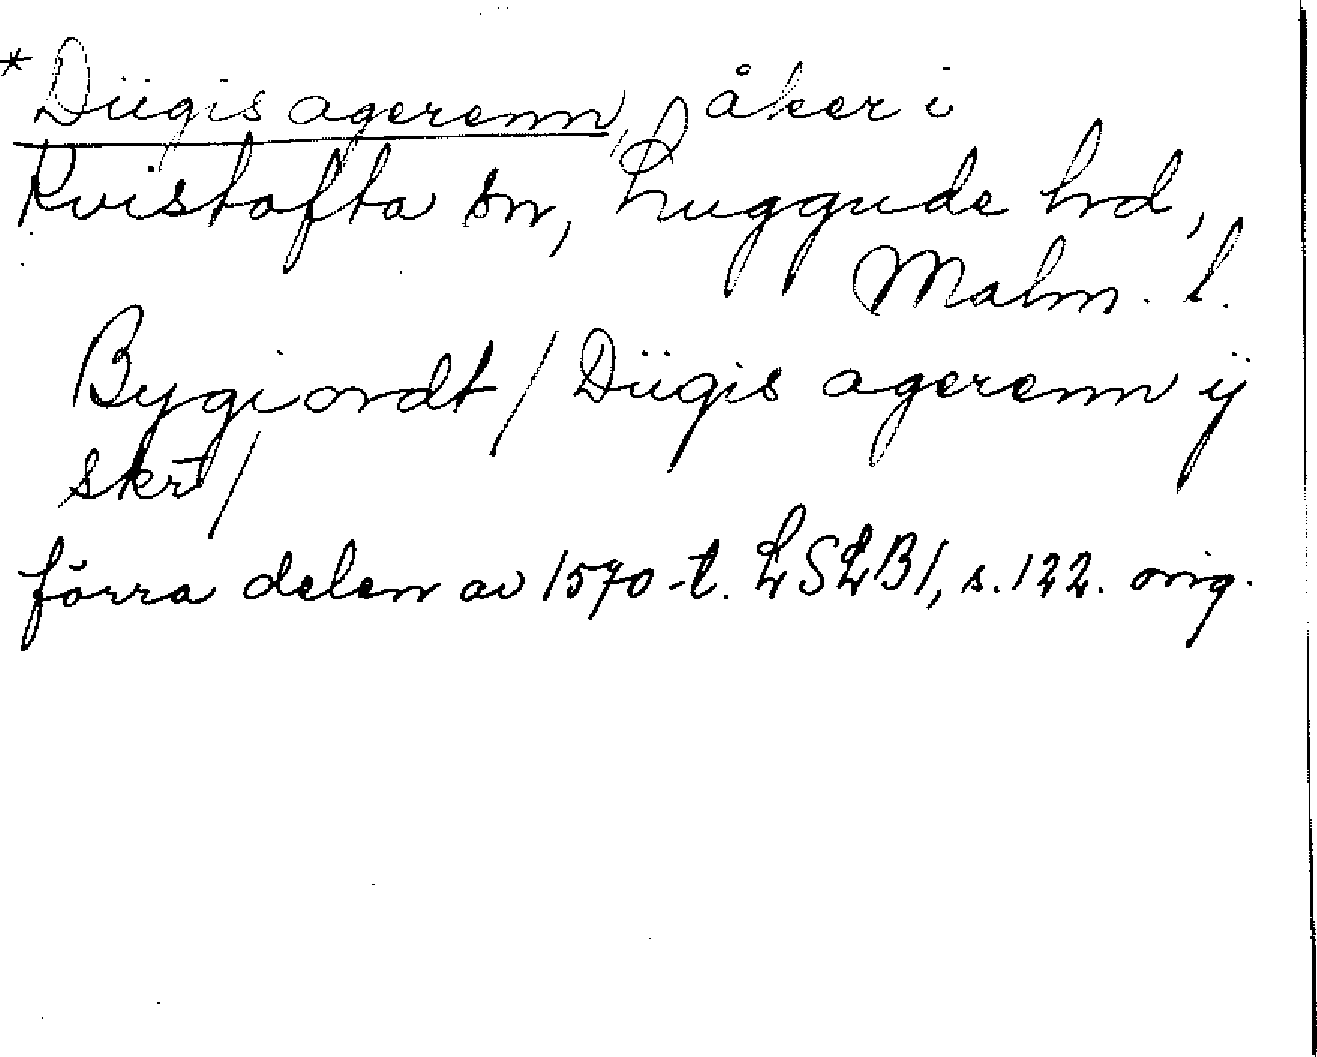 * Diigis agerenn, åker i
Kvistofta sn, Luggude hd,
Malm. l.
Bygiordt / Diigis agerenn ij
skr̄t /
förra delen av 1570-t. LSLB1, s. 122. orig.